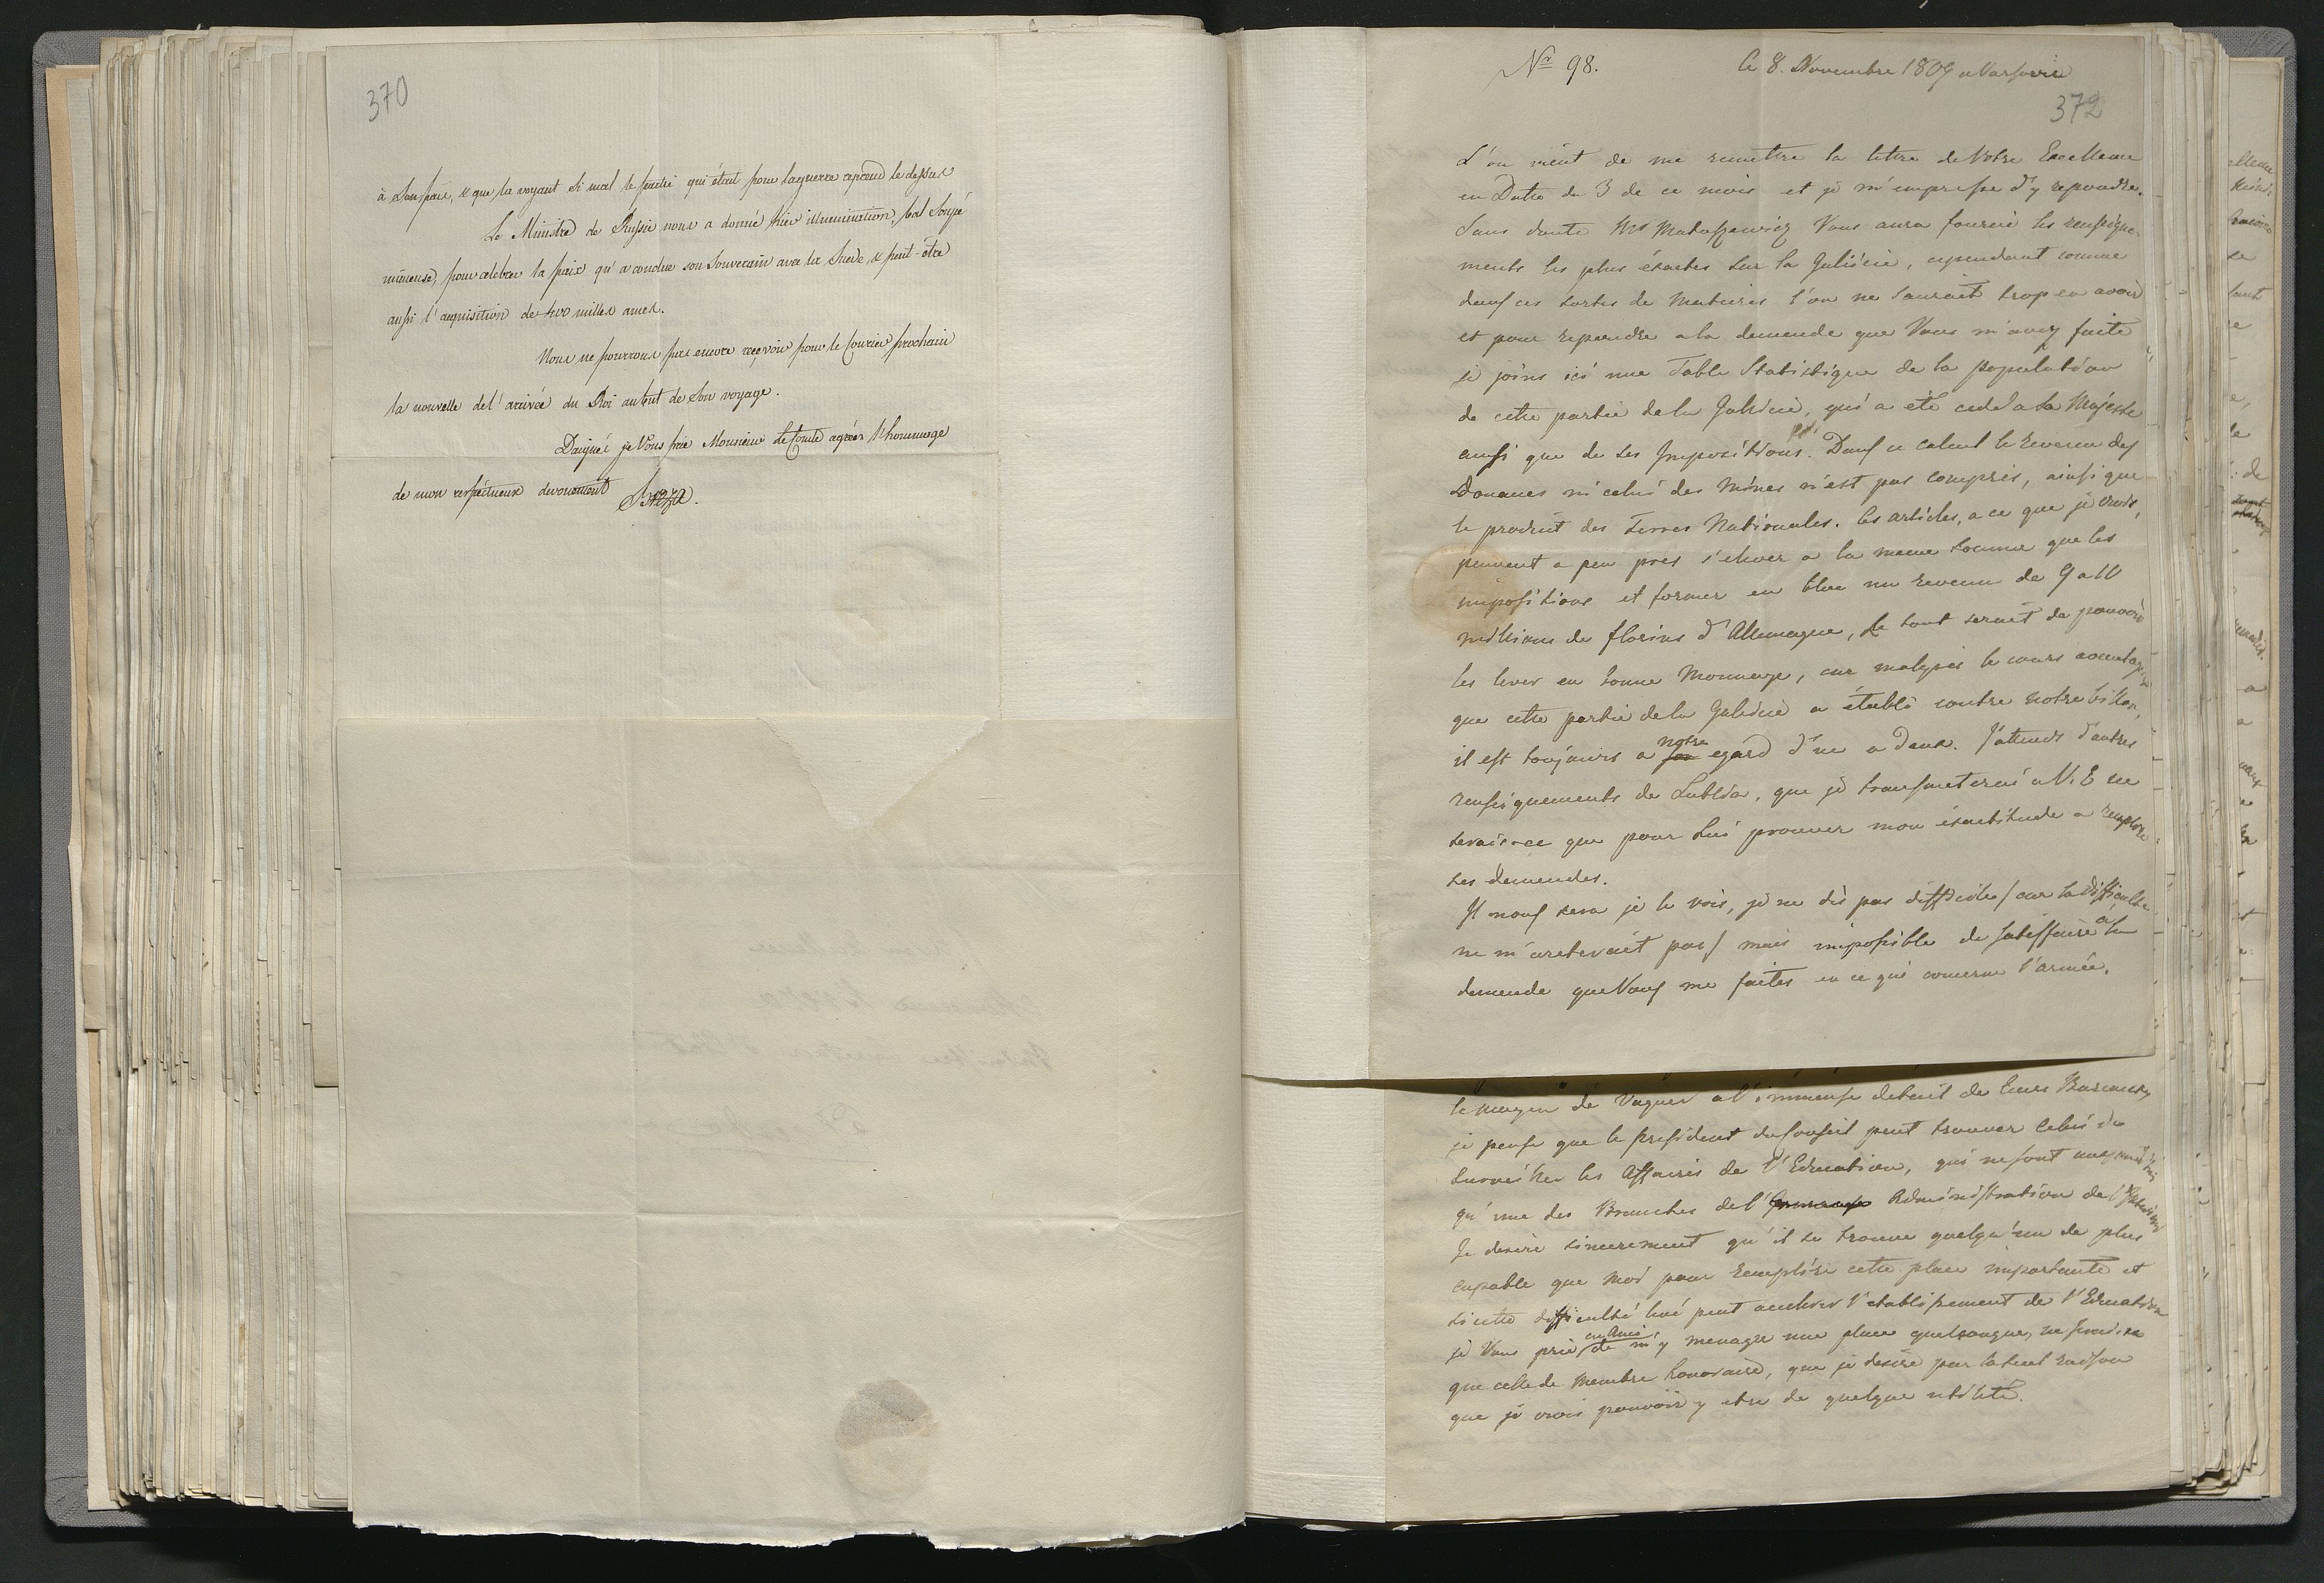 370
à Son frère, & que la voyant si mal le parti qui était pour la guerre reprend le dessus
Le Ministre de Russie nous a donné hier illumination, bal Soupé
immense, pour celebrer la paix qu'a conclue son Souverain avec la Suede, & peut-être
aussi l'acquisition de 400 milles ames.
Nous ne pourrons pas encore reçevoir pour le Courier prochain
la nouvelle de l'arrivée du Roi au but de Son voyage.
Daignéz je Vous prie Monsieur le Comte agréer l'hommage
de mon respectueux devouement
Nr 98. le 8. Novembre 1809 a Varsovie
372
L'on vient de me remettre la lettre de Votre Excellence
en Datte du 3 de ce mois et je m'empresse d'y repondre.
Sans doute Mr Matuszewicz Vous aura fourni les renseigne-
ments les plus éxactes sur la Galicie, cependant comme
dans ces sortes de Matieres l'on ne sauroit trop en avoir
et pour repondre a la demende que Vous m'avez faite
je joins ici une Table Statistique de la population
de cette partie de la Galicie, qui a eté cedé a Sa Majesté
ainsi que de ses Impositions. Dans ce calcul le revenu des
Douanes ni celui des Mines n'est pas compris, ainsi que
le produit des Terres Nationales. Ces articles, a ce que je crois,
peuvent a peu pres s'elever a la meme somme que les
impositions et former en bloc un revenu de 9 a 10
millions de florins d'Allemagne, le tout seroit de pouvoir
les lever en bonne Monnaye, car malgrés le cours avantageux
que cette partie de la Galicie a établi contre notre billon,
il est toujours a notre egard d'un a deux. J'attends d'autres
renseignements de Lublin, que je transmeterai a V. E ne
serais-ce que pour Lui prouver mon éxactitude a remplire
ses demendes.
Il nous sera je le vois, je ne dis pas difficile / car la difficulté
ne m'areterait pas / mais impossible de satisfaire à la
demende que Vous me faites en ce qui concerne l'armée.
le moyen de Vaquer a l'immense detail de leurs Bureaux,
je pense que le president du Conseil peut trouver celui de
surveiller les Affaires de l'Education, qui ne sont
qu'une des Branches de l' Administration de l'Interieur
Je desire sincerement qu'il se trouve quelqu'un de plus
capable que Moi pour remplire cette place importante et
si cette difficulté levé peut achever l'etablissement de l'Education
je Vous prie en Ami, de m'y menager une place quelconque, ne serai-ce
que celle de Membre honoraire, que je desire par la seul raison
que je crois pouvoir y etre de quelque utilité.